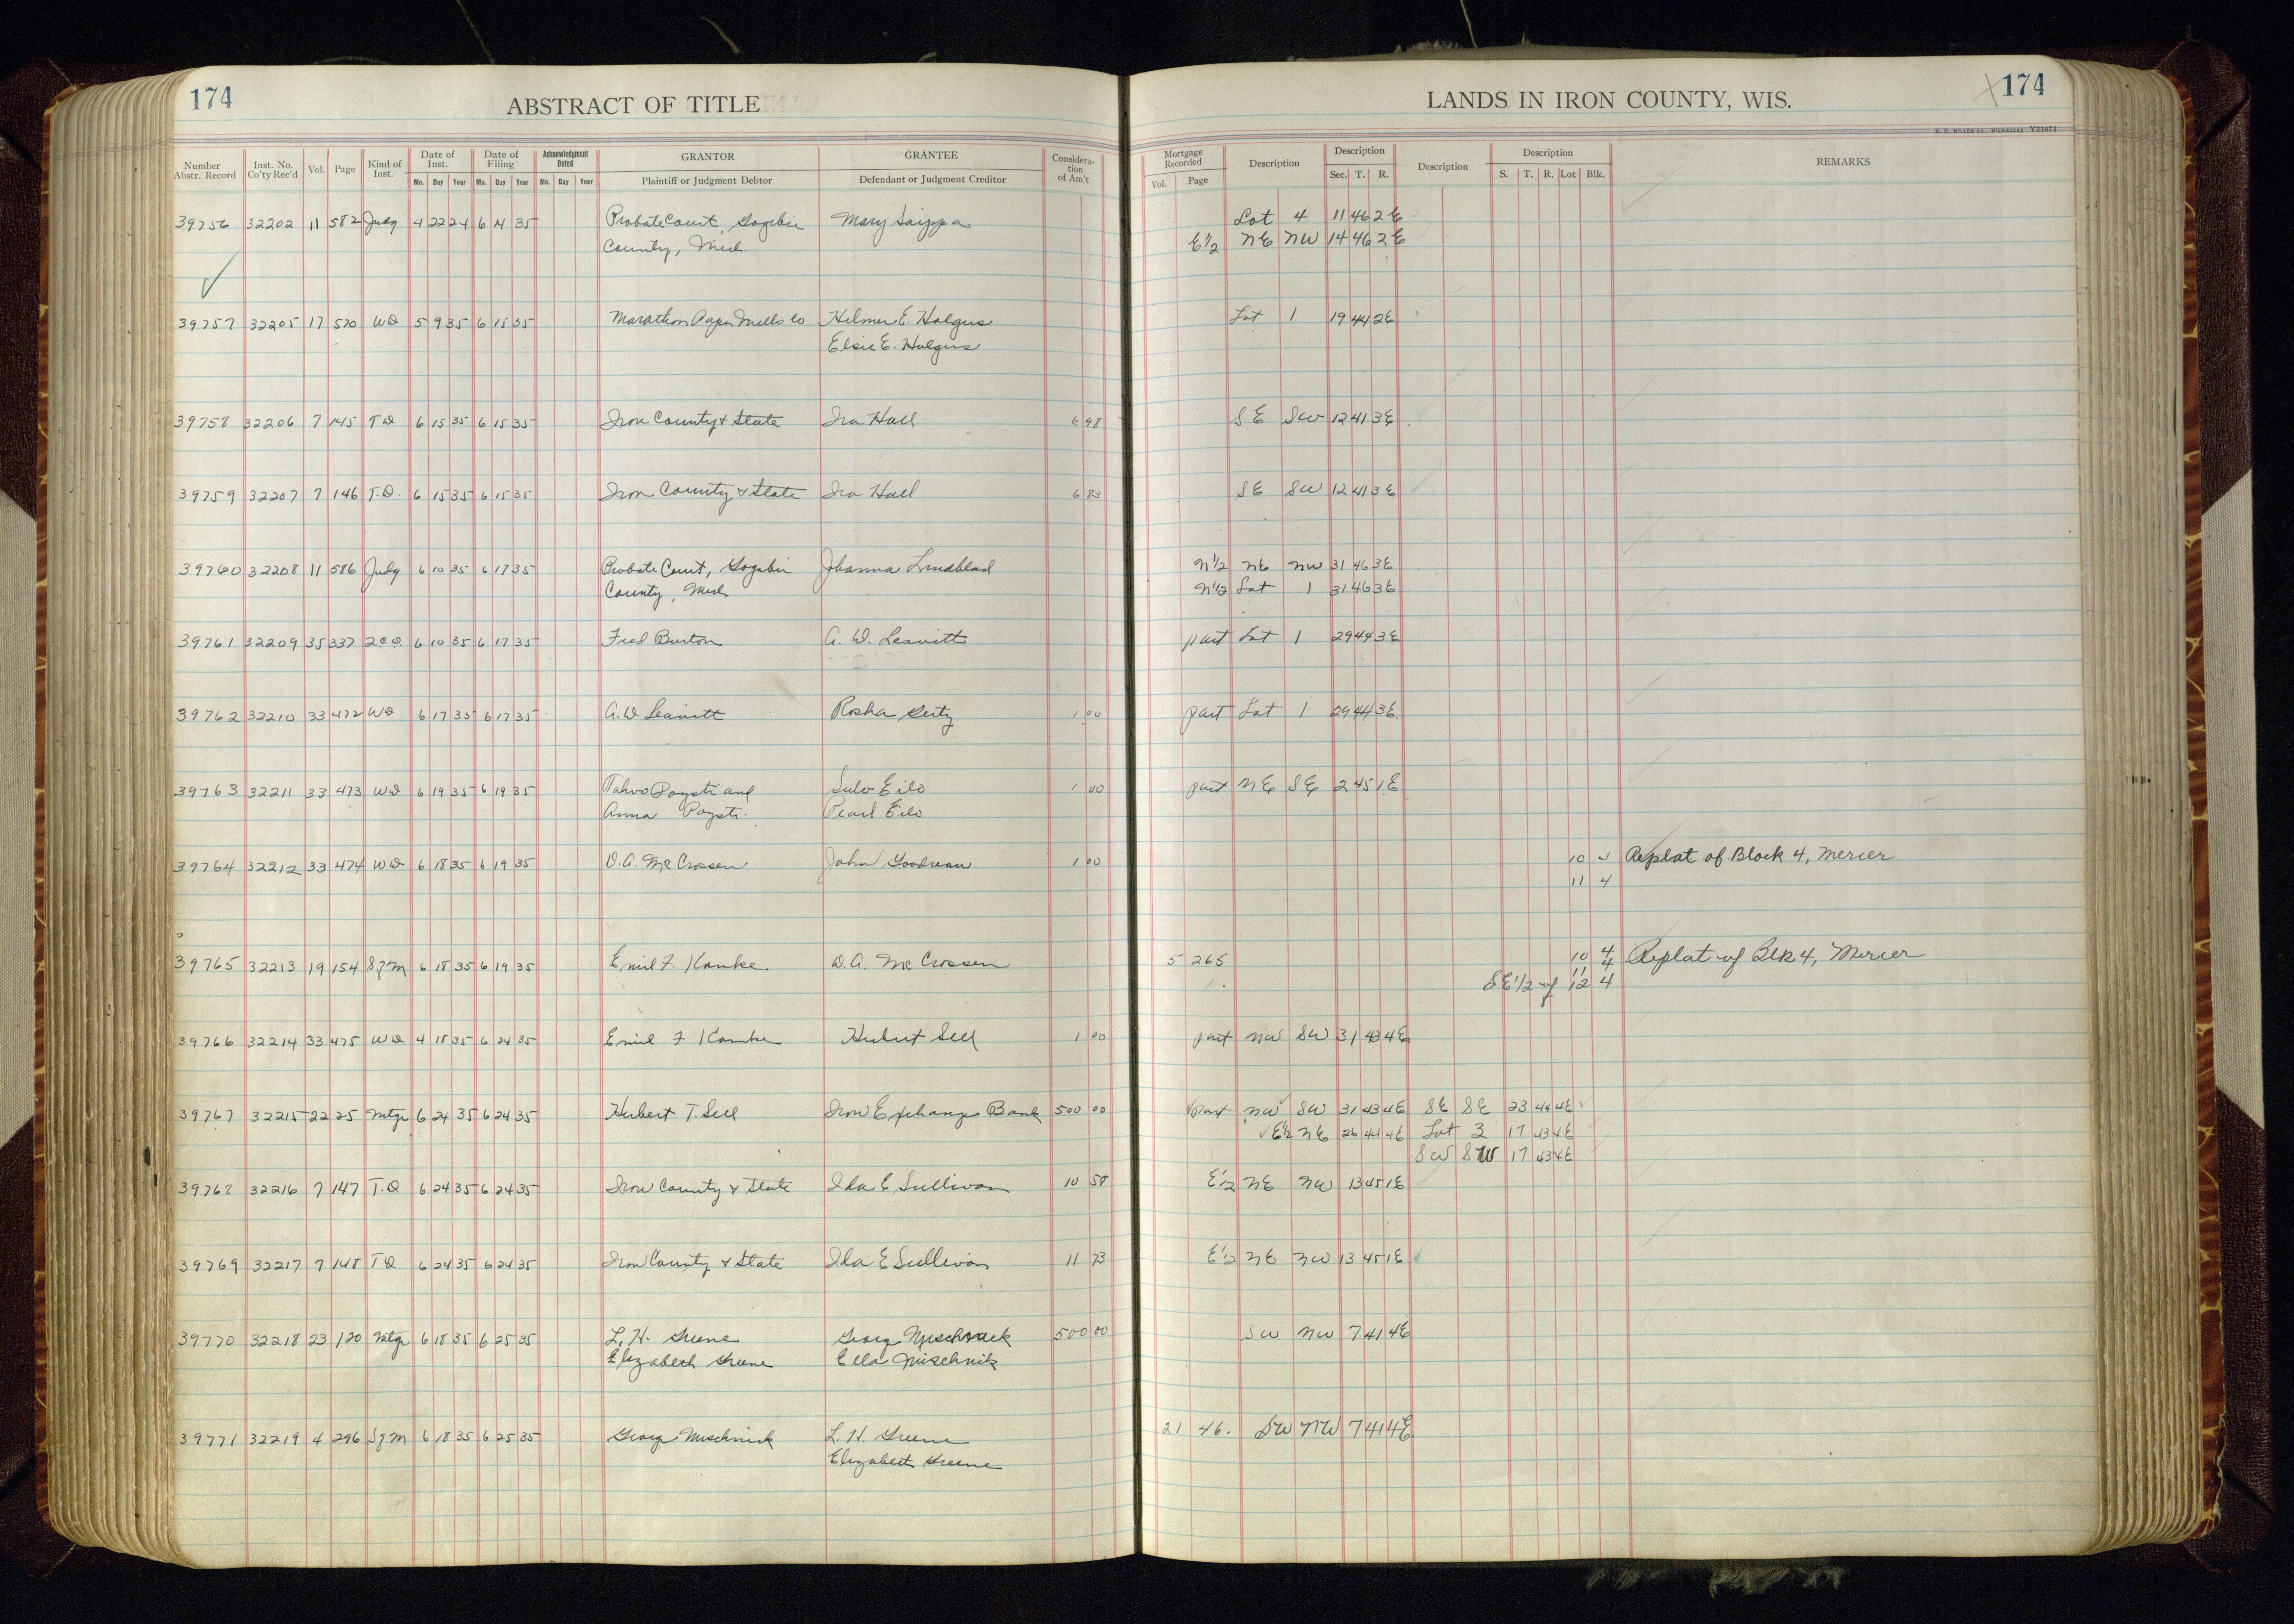 174
ABSTRACT OF TITLE
LANDS IN IRON COUNTY, WIS.
174
H. C. MILLER CO., MILWAUKEE V21071
Number Abstr. Record Inst. No. Co'ty Rec'd Vol. Page Kind of Inst. Date of Inst. Mo. Day Year Date of Filing Mo. Day Year Acknowledgment Dated Mo. Day Year GRANTOR Plaintiff or Judgment Debtor GRANTEE Defendant or Judgment Creditor Consideration of Am't
Mortgage Recorded Vol. Page Description Description Sec. T. R. Description Description S. T. R. Lot Blk. REMARKS
39756 32202 11 582 Judg 4 22 24 6 14 35 Probate Court, Gogebic Mary Saippa Lot 4 11 46 2E
County, Mich. E½ NE NW 14 46 2E
39757 32205 17 570 WD 5 9 35 6 15 35 Marathon Paper Mills Co Hilmer E. Holgers Lot 1 19 44 2E
Elsie E. Holgers
39758 32206 7 145 TD 6 15 35 6 15 35 Iron County & State Ira Hall 6 98 SE SW 12 41 3E
39759 32207 7 146 T.D. 6 15 35 6 15 35 Iron County & State Ira Hall 6 83 SE SW 12 41 3E
39760 32208 11 586 Judg 6 10 35 6 17 35 Probate Court, Gogebic Johanna Lindblad N½ NE NW 31 46 3E
County, Mich N½ Lot 1 31 46 3E
39761 32209 35 337 2CD. 6 10 35 6 17 35 Fred Burton A. W. Leavitt part Lot 1 29 44 3E
39762 32210 33 472 WD 6 17 35 6 17 35 A. W. Leavitt Rosha Gertz 1 00 part Lot 1 29 44 3E
39763 32211 33 473 WD 6 19 35 6 19 35 Tahvo Poysti and Sulo Eilo 1 00 part NE SE 2 45 1E
Anna Poysti. Pearl Eilo
39764 32212 33 474 WD 6 18 35 6 19 35 D. A. McCrossen John Goodreau 1 00 10 4 Replat of Block 4, Mercer
11 4
39765 32213 19 154 SfM 6 18 35 6 19 35 Emil F. Kamke D. A. McCrossen 5 265 10 4 Replat of Blk 4, Mercer
11 4
SE 1/2 of 12 4
39766 32214 33 475 WD 4 18 35 6 24 35 Emil F Kamke Hubert Sell 1 00 part NW SW 31 43 4E
39767 32215 22 25 Mtge 6 24 35 6 24 35 Hubert T. Sell Iron Exchange Bank 500 00 part NW SW 31 43 4E SE SE 23 44 4E
E½ NE 26 44 4E Lot 3 17 43 4E
SW SW 17 43 4E
39768 32216 7 147 T.D 6 24 35 6 24 35 Iron County & State Ida E Sullivan 10 58 E½ NE NW 13 45 1E
39769 32217 7 148 TD 6 24 35 6 24 35 Iron County & State Ida E Sullivan 11 73 E½ NE NW 13 45 1E
39770 32218 23 120 Mtge 6 18 35 6 25 35 L. H. Greene Georg Mischnick 500 00 SW NW 7 41 4E
Elizabeth Greene Ella Mischnik
39771 32219 4 296 SfM 6 18 35 6 25 35 Georg Mischnick L. H. Greene 21 46. SW NW 7 41 4E
Elizabeth Greene